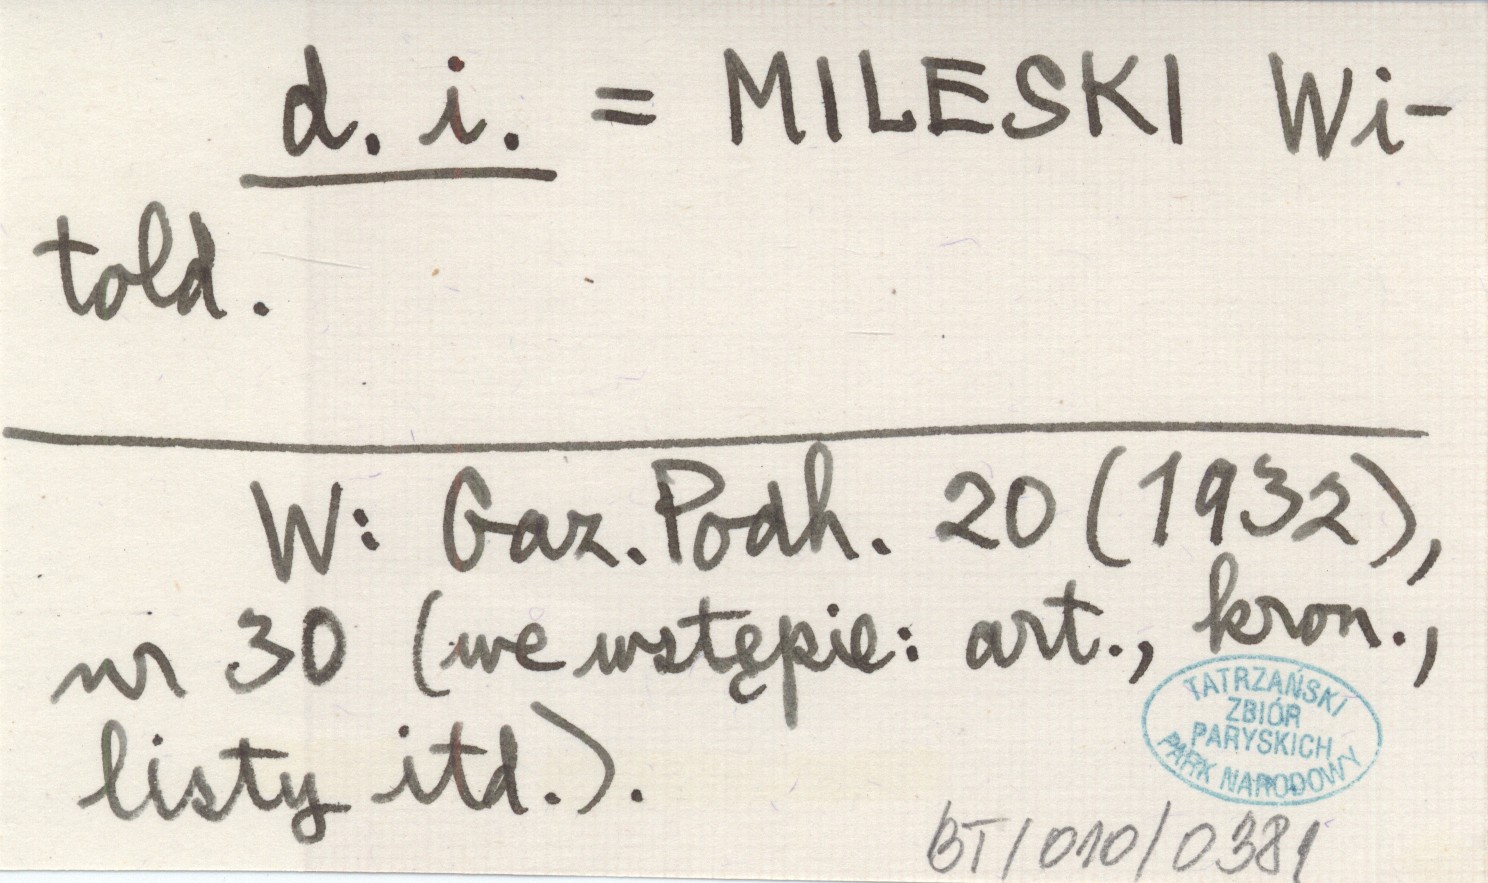 d. i. = MILESKI Wi-
told.
W: Gaz. Podh. 20 (1932),
nr 30 (we wstępie: art., kron.,
listy itd.).
TATRZAŃSKI
ZBIÓR
PARYSKICH
PARK NARODOWY
BT/010/0381